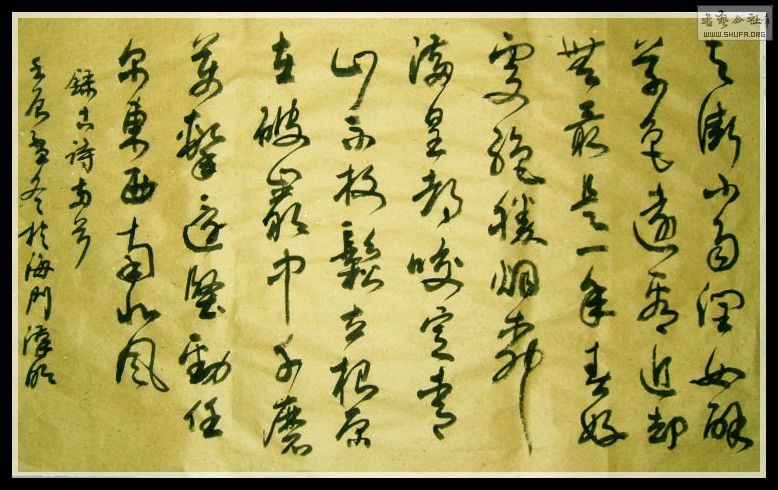 天街小雨潤如酥
草色遙看近却
無最是一年春好
處絕勝烟柳
滿皇都咬定青
山不放鬆立根原
在破巖中千磨
萬擊還堅勁任
尔東西南北風
錄古詩兩首
壬辰冬於海門
WWW.SHUFA.ORG